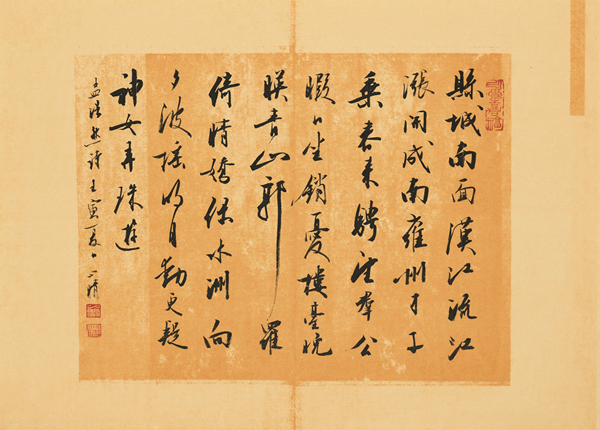 縣城南面漢江流江
漲開成南雍州才子
乘春来騁望群公
暇日坐銷憂樓臺晚
映青山郭羅
綺晴嬌綠水洲向
夕波摇明月動更疑
神女弄珠遊
孟浩然詩壬寅夏日